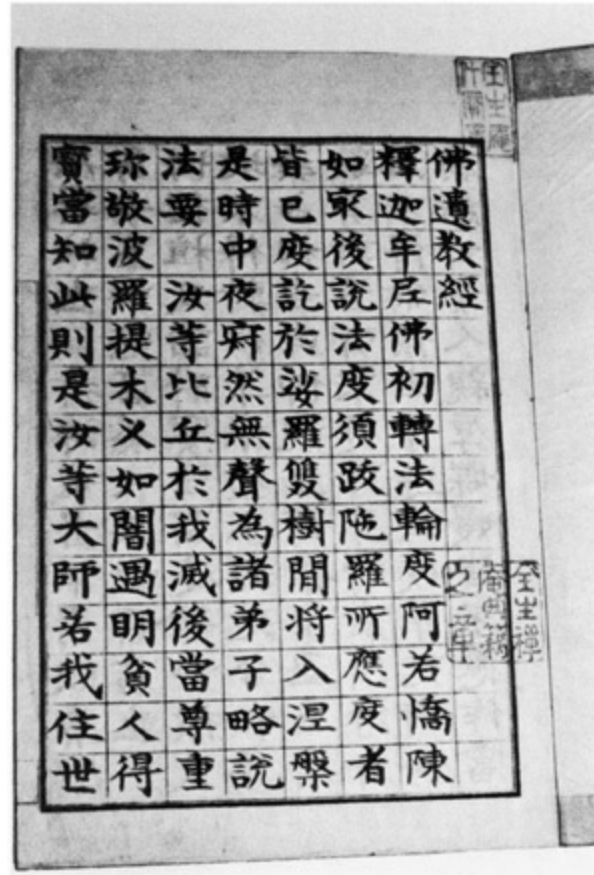 佛遺教經
釋迦牟尼佛初轉法輪度阿若憍陳
如㝡後說法度須跋陁羅所應度者
皆已度訖於娑羅雙樹間將入涅槃
是時中夜寂然無聲為諸弟子略說
法要 汝等比丘於我滅後當尊重
珎敬波羅提木叉如闇遇明貧人得
寶當知此則是汝等大師若我住世
全生禪
菴典籍
之章